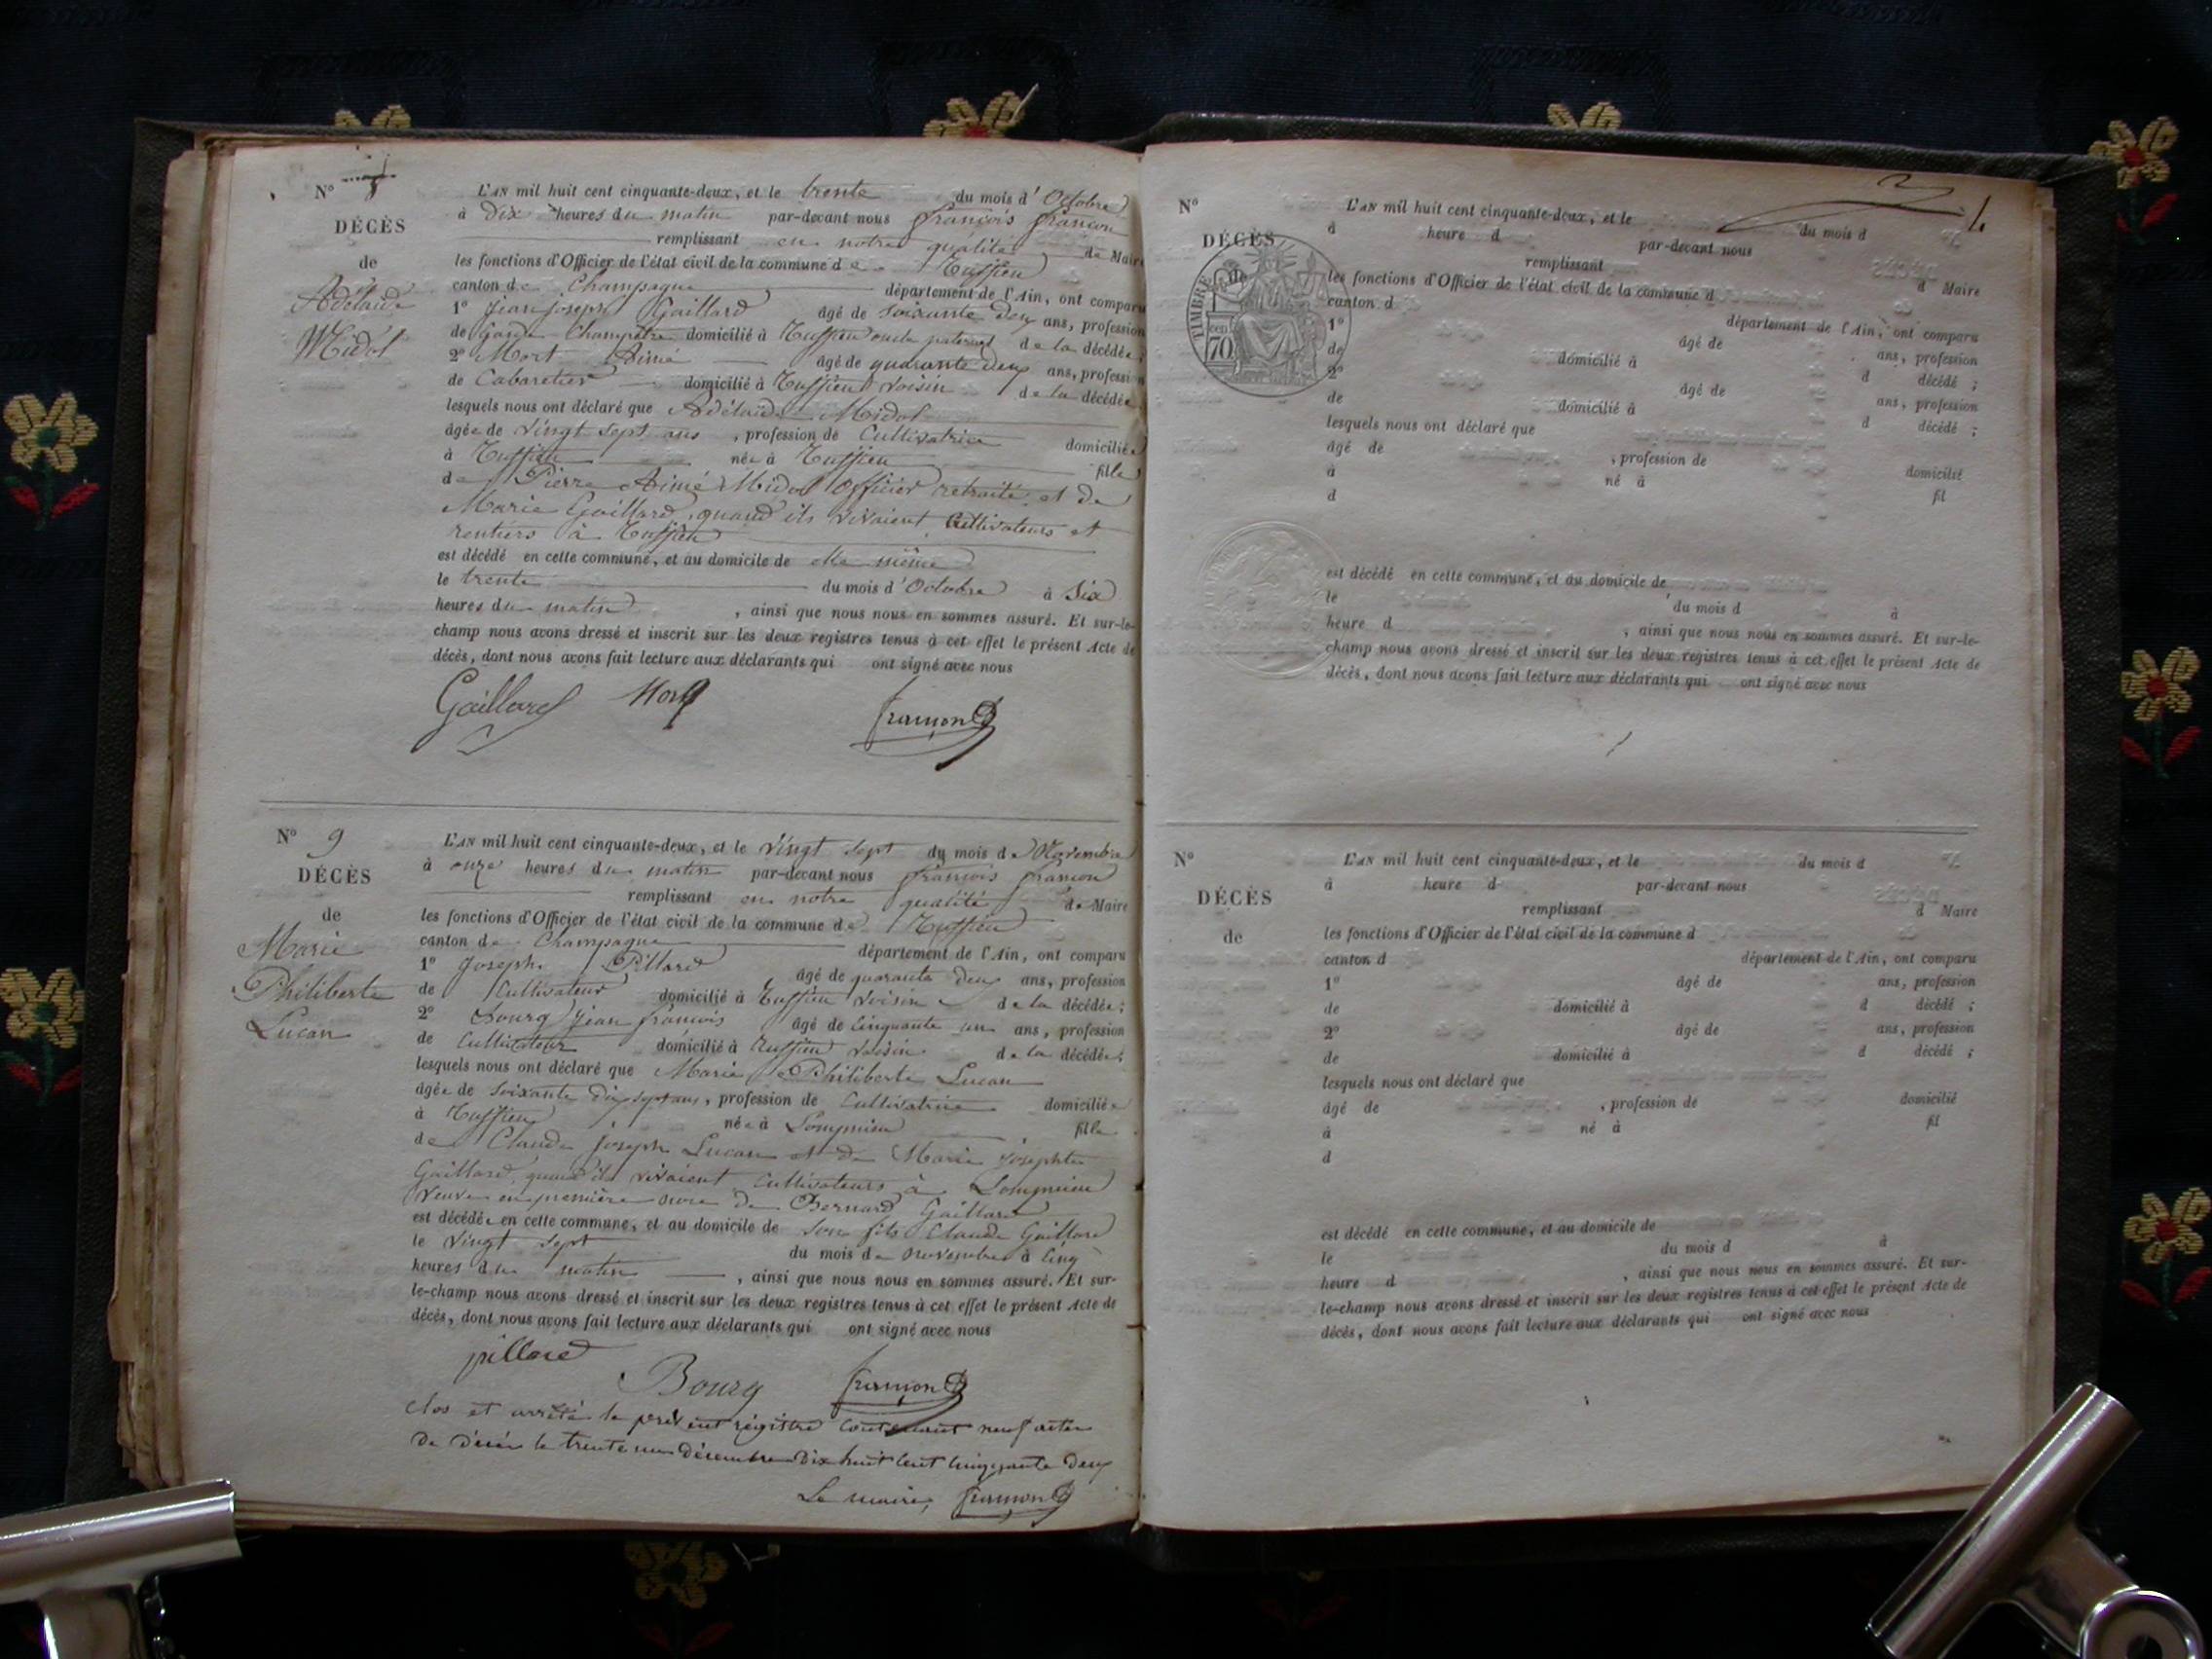 N° 8
DÉCÈS
de
Adélaïde
Midol
L'AN mil huit cent cinquante-deux, et le trente du mois d'Octobre
à Dix heures du matin par-devant nous françois françon
remplissant en notre qualité de Maire
les fonctions d'Officier de l'état civil de la commune de Ruffieu
canton de Champagne département de l'Ain, ont comparu
1° Jean Joseph Gaillard âgé de soixante deux ans, profession
de Garde Champêtre domicilié à Ruffieu oncle paternel de la décédée;
2° Mort Aimé âgé de quarante deux ans, profession
de Cabaretier domicilié à Ruffieu voisin de la décédée
lesquels nous ont déclaré que Adélaïde Midol
âgée de vingt sept ans, profession de Cultivatrice domiciliée
à Ruffieu née à Ruffieu fille
de Pierre Aimé Midol Officier retraité et de
Marie Gaillard, quand ils vivaient Cultivateurs et
rentiers à Ruffieu
est décédé en cette commune, et au domicile de elle même
le trente du mois d'Octobre à Six
heures du matin, ainsi que nous nous en sommes assuré. Et sur-le-
champ nous avons dressé et inscrit sur les deux registres tenus à cet effet le présent Acte de
décès, dont nous avons fait lecture aux déclarants qui ont signé avec nous
Gaillard Mort françon
N° 9
DÉCÈS
de
Marie
Philiberte
Luçan
L'AN mil huit cent cinquante-deux, et le vingt sept du mois de Novembre
à onze heures du matin par-devant nous françois françon
remplissant en notre qualité de Maire
les fonctions d'Officier de l'état civil de la commune de Ruffieu
canton de Champagne département de l'Ain, ont comparu
1° Joseph Pillard âgé de quarante deux ans, profession
de Cultivateur domicilié à Ruffieu voisin de la décédée;
2° Bourg Jean françois âgé de Cinquante un ans, profession
de Cultivateur domicilié à Ruffieu voisin de la décédée;
lesquels nous ont déclaré que Marie Philiberte Luçan
âgée de soixante dix sept ans, profession de Cultivatrice domiciliée
à Ruffieu née à Lompnieu fille
de Claude Joseph Luçan et de Marie Josephte
Gaillard, quand ils vivaient Cultivateurs à Lompnieu
Veuve en première noce de Bernard Gaillard
est décédée en cette commune, et au domicile de son fils Claude Gaillard
le vingt sept du mois de novembre à Cinq
heures du matin, ainsi que nous nous en sommes assuré. Et sur-
le-champ nous avons dressé et inscrit sur les deux registres tenus à cet effet le présent Acte de
décès, dont nous avons fait lecture aux déclarants qui ont signé avec nous
pillard Bourg françon
Clos et arrêté le présent régistre contenant neuf actes
de décès le trente un décembre Dix huit cent cinquante deux
Le maire, françon
N°
DÉCÈS
TIMBRE
70
L'AN mil huit cent cinquante-deux, et le du mois d
à heure d par-devant nous
remplissant
les fonctions d'Officier de l'état civil de la commune d d Maire
canton d département de l'Ain, ont comparu
1° âgé de ans, profession
de domicilié à d décédé ;
2° âgé de ans, profession
de domicilié à d décédé ;
lesquels nous ont déclaré que
âgé de , profession de domicilié
à né à fil
d
est décédé en cette commune, et au domicile de
le du mois d à
heure d , ainsi que nous nous en sommes assuré. Et sur-le-
champ nous avons dressé et inscrit sur les deux registres tenus à cet effet le présent Acte de
décès, dont nous avons fait lecture aux déclarants qui ont signé avec nous
N°
DÉCÈS
de
L'AN mil huit cent cinquante-deux, et le du mois d
à heure d par-devant nous
remplissant d Maire
les fonctions d'Officier de l'état civil de la commune d
canton d département de l'Ain, ont comparu
1° âgé de ans, profession
de domicilié à d décédé ;
2° âgé de ans, profession
de domicilié à d décédé ;
lesquels nous ont déclaré que
âgé de , profession de domicilié
à né à fil
d
est décédé en cette commune, et au domicile de
le du mois d à
heure d , ainsi que nous nous en sommes assuré. Et sur-
le-champ nous avons dressé et inscrit sur les deux registres tenus à cet effet le présent Acte de
décès, dont nous avons fait lecture aux déclarants qui ont signé avec nous